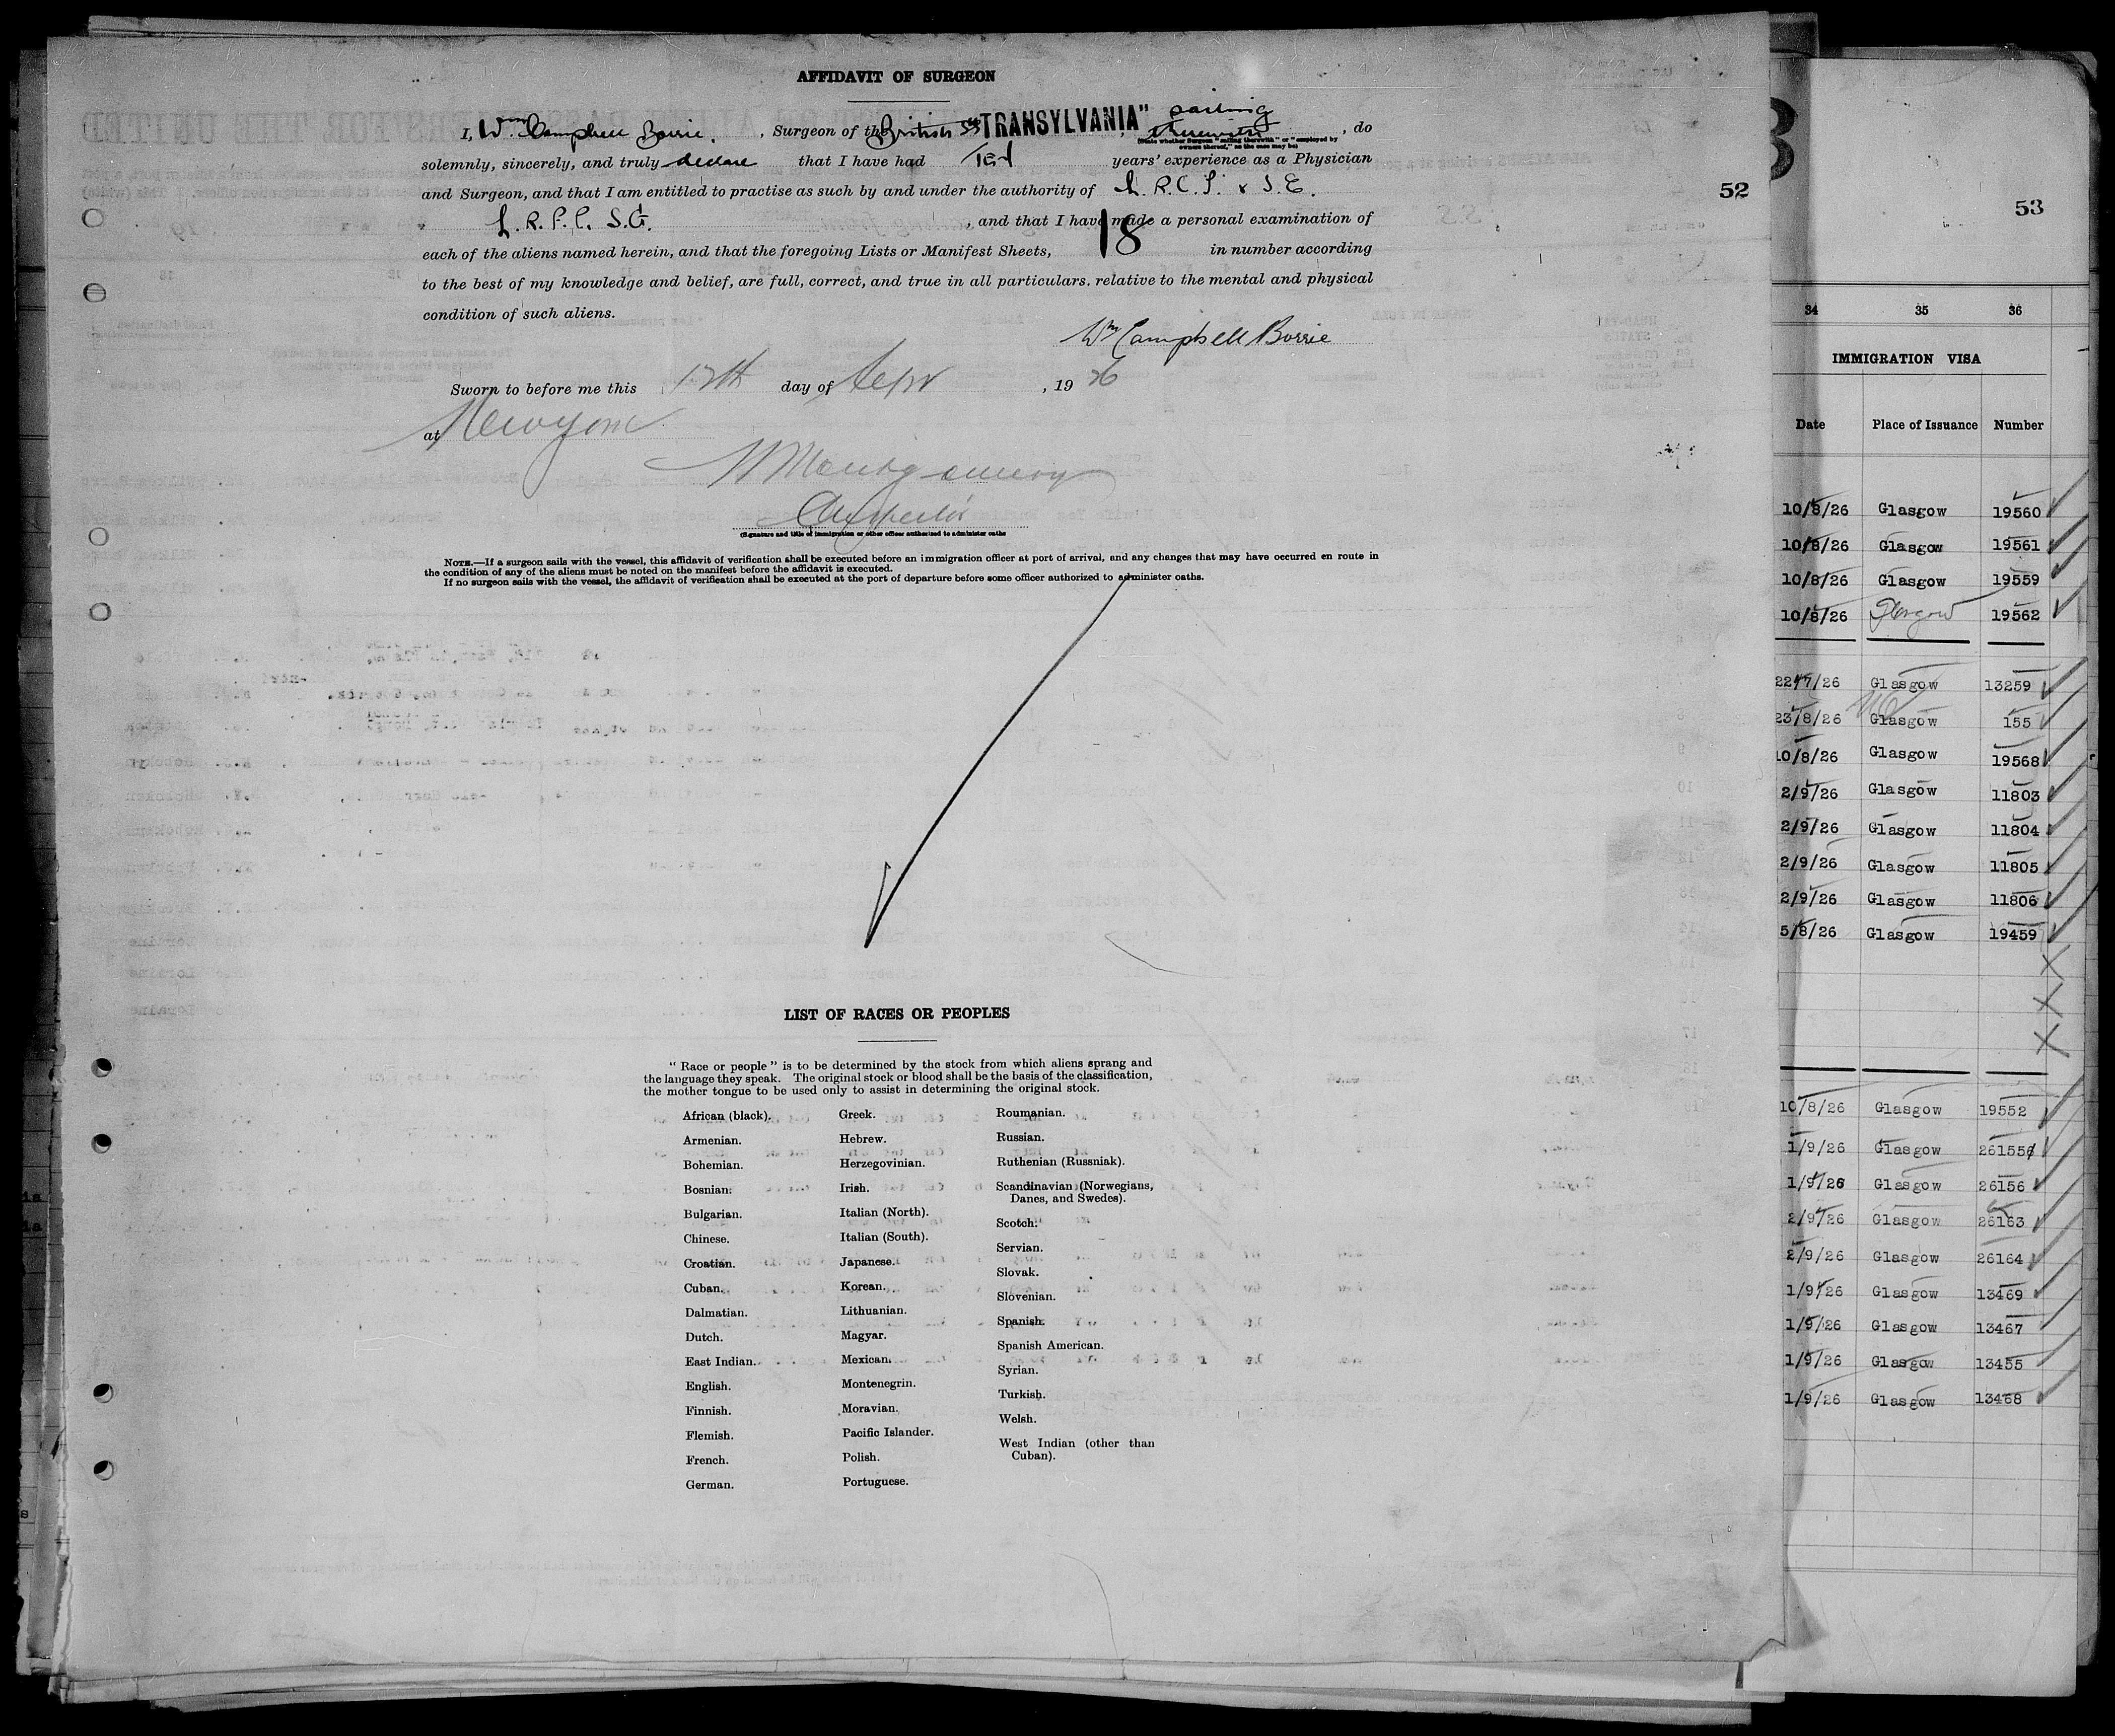 AFFIDAVIT OF SURGEON
I, Wm Campbell Borrie, Surgeon of the British SS "TRANSYLVANIA" sailing therewith, do
(State whether Surgeon "sailing therewith" or "employed by
owners thereof," as the case may be)
solemnly, sincerely, and truly declare that I have had Ten years' experience as a Physician
and Surgeon, and that I am entitled to practise as such by and under the authority of L.R.C.P. & S.E.
L.R.F.P. S.G. , and that I have made a personal examination of
each of the aliens named herein, and that the foregoing Lists or Manifest Sheets, 18 in number according
to the best of my knowledge and belief, are full, correct, and true in all particulars, relative to the mental and physical
condition of such aliens.
Wm Campbell Borrie
Sworn to before me this 12th day of Sept , 19 26
at New York
Montgomery
(Signature and title of immigration or other officer authorised to administer oaths
NOTE.—If a surgeon sails with the vessel, this affidavit of verification shall be executed before an immigration officer at port of arrival, and any changes that may have occurred en route in
the condition of any of the aliens must be noted on the manifest before the affidavit is executed.
If no surgeon sails with the vessel, the affidavit of verification shall be executed at the port of departure before some officer authorized to administer oaths.
52
LIST OF RACES OR PEOPLES
" Race or people " is to be determined by the stock from which aliens sprang and
the language they speak. The original stock or blood shall be the basis of the classification,
the mother tongue to be used only to assist in determining the original stock.
African (black).
Armenian.
Bohemian.
Bosnian.
Bulgarian.
Chinese.
Croatian.
Cuban.
Dalmatian.
Dutch.
East Indian.
English.
Finnish.
Flemish.
French.
German.
Greek.
Hebrew.
Herzegovinian.
Irish.
Italian (North).
Italian (South).
Japanese.
Korean.
Lithuanian.
Magyar.
Mexican.
Montenegrin.
Moravian.
Pacific Islander.
Polish.
Portuguese.
Roumanian.
Russian.
Ruthenian (Russniak).
Scandinavian (Norwegians,
Danes, and Swedes).
Scotch.
Servian.
Slovak.
Slovenian.
Spanish.
Spanish American.
Syrian.
Turkish.
Welsh.
West Indian (other than
Cuban).
53
34 35 36
IMMIGRATION VISA
Date Place of Issuance Number
10/8/26 Glasgow 19560
10/8/26 Glasgow 19561
10/8/26 Glasgow 19559
10/8/26 Glasgow 19562
22/7/26 Glasgow 13259
23/8/26 Glasgow 155
10/8/26 Glasgow 19568
2/9/26 Glasgow 11803
2/9/26 Glasgow 11804
2/9/26 Glasgow 11805
2/9/26 Glasgow 11806
5/8/26 Glasgow 19459
10/8/26 Glasgow 19552
1/9/26 Glasgow 26155
1/9/26 Glasgow 26156
2/9/26 Glasgow 26163
2/9/26 Glasgow 26164
1/9/26 Glasgow 13469
1/9/26 Glasgow 13467
1/9/26 Glasgow 13455
1/9/26 Glasgow 13468